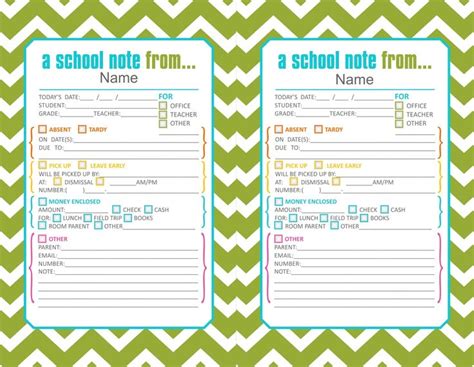 a school note from...
Name
TODAY'S DATE:____/____/____ FOR
STUDENT:____________ ☐ OFFICE
GRADE:______TEACHER:______ ☐ TEACHER
☐ OTHER
☐ ABSENT ☐ TARDY
ON DATE(S):____________
DUE TO:____________
☐ PICK UP ☐ LEAVE EARLY
WILL BE PICKED UP BY:____________
AT: ☐ DISMISSAL ☐ ________AM/PM
NUMBER:( )____________
☐ MONEY ENCLOSED
AMOUNT:________ ☐ CHECK ☐ CASH
FOR: ☐ LUNCH ☐ FIELD TRIP ☐ BOOKS
☐ ROOM PARENT ☐ OTHER____________
☐ OTHER
PARENT:____________
EMAIL:____________
NUMBER:____________
NOTE:____________
a school note from...
Name
TODAY'S DATE:____/____/____ FOR
STUDENT:____________ ☐ OFFICE
GRADE:______TEACHER:______ ☐ TEACHER
☐ OTHER
☐ ABSENT ☐ TARDY
ON DATE(S):____________
DUE TO:____________
☐ PICK UP ☐ LEAVE EARLY
WILL BE PICKED UP BY:____________
AT: ☐ DISMISSAL ☐ ________AM/PM
NUMBER:( )____________
☐ MONEY ENCLOSED
AMOUNT:________ ☐ CHECK ☐ CASH
FOR: ☐ LUNCH ☐ FIELD TRIP ☐ BOOKS
☐ ROOM PARENT ☐ OTHER____________
☐ OTHER
PARENT:____________
EMAIL:____________
NUMBER:____________
NOTE:____________